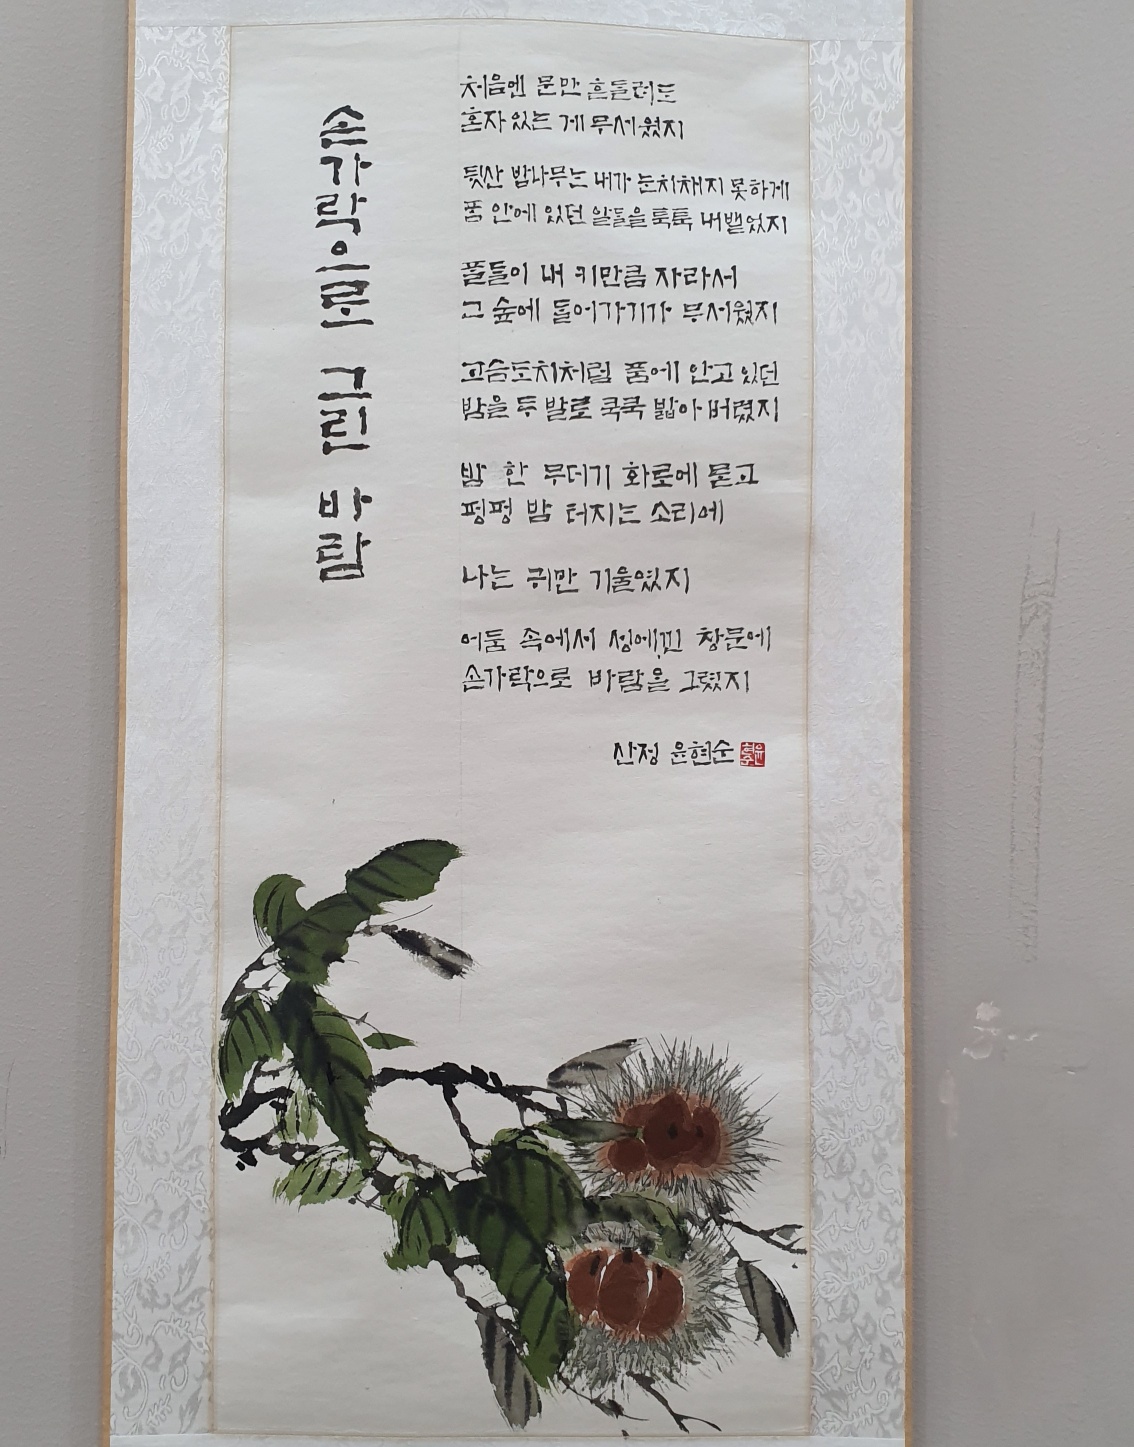 손가락으로 그린 바람
처음엔 문만 흔들려도
혼자 있는 게 무서웠지
뒷산 밤나무는 내가 눈치채지 못하게
품 안에 있던 알들을 툭툭 내뱉었지
풀들이 내 키만큼 자라서
그 숲에 들어가기가 무서웠지
고슴도치처럼 품에 안고 있던
밤을 두 발로 쿡쿡 밟아 버렸지
밤 한 무더기 화로에 묻고
펑펑 밤 터지는 소리에
나는 귀만 기울였지
어둠 속에서 성에낀 창문에
손가락으로 바람을 그렸지
산정 윤현순